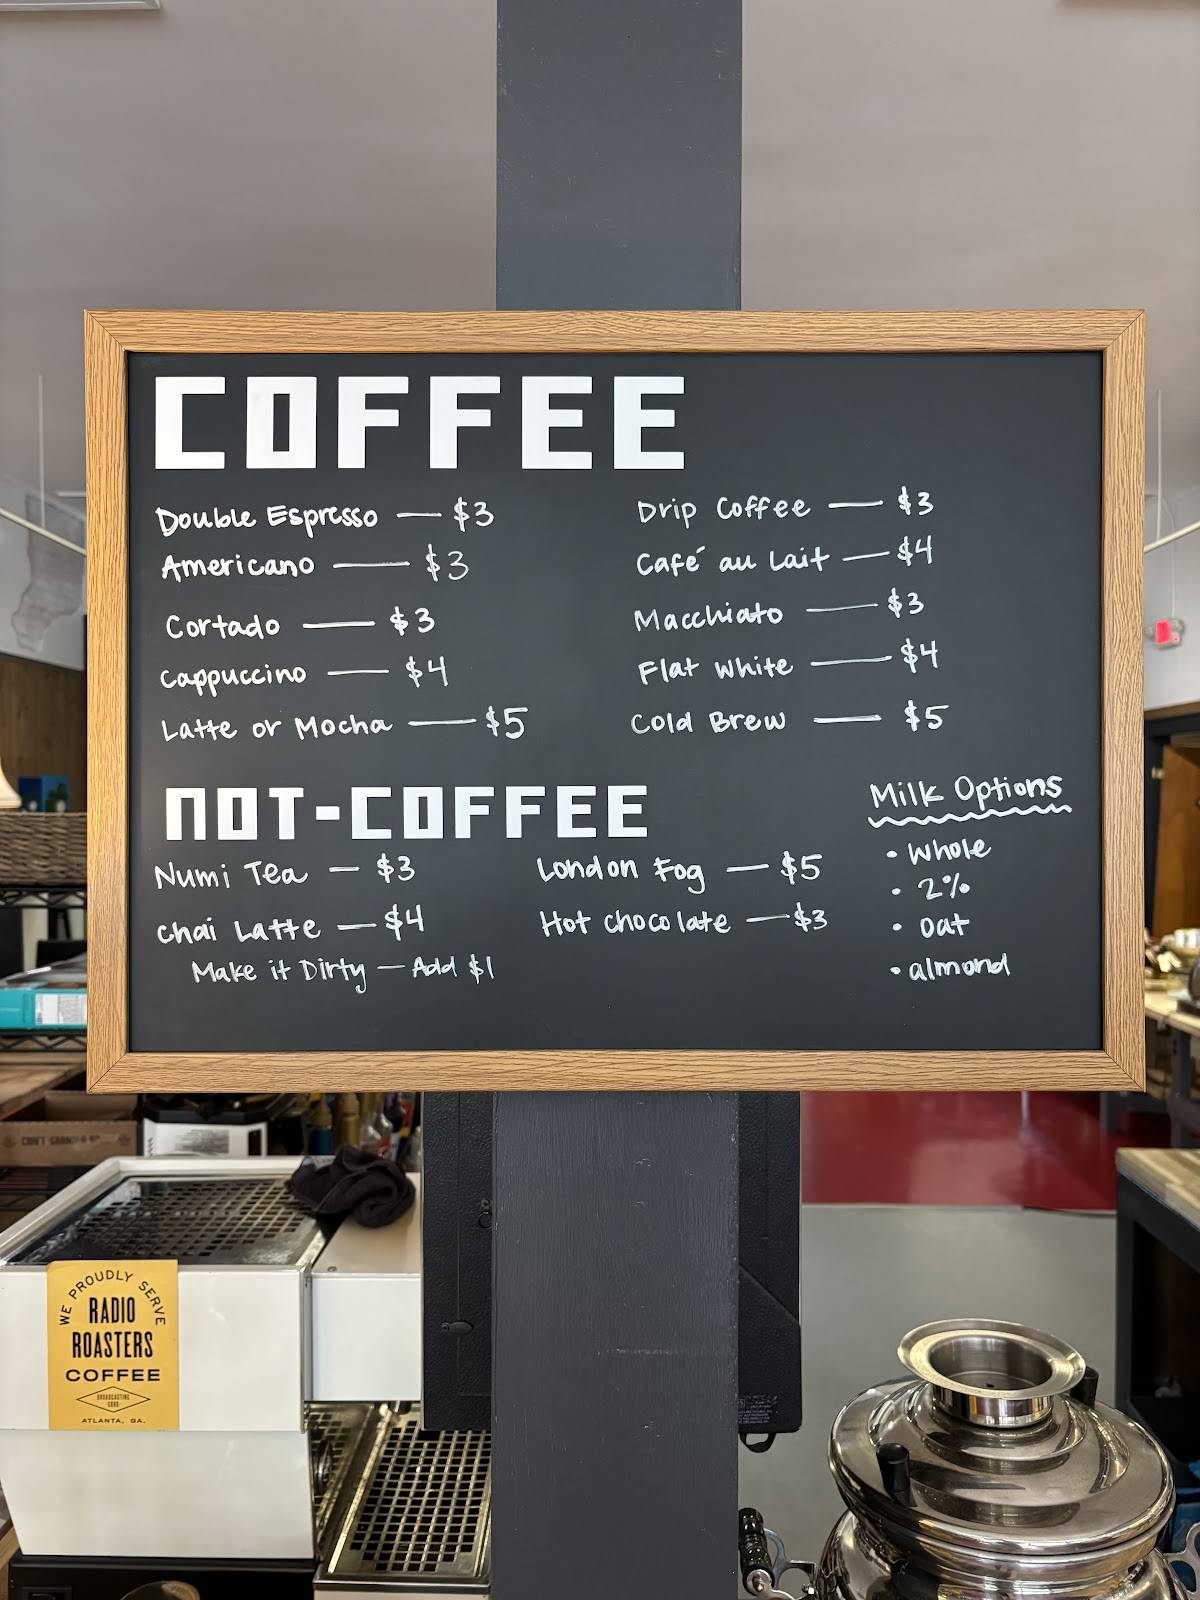 COFFEE
Double Espresso — $3
Americano — $3
Cortado — $3
Cappuccino — $4
Latte or Mocha — $5
Drip Coffee — $3
Café au Lait — $4
Macchiato — $3
Flat White — $4
Cold Brew — $5
NOT-COFFEE
Numi Tea — $3
Chai Latte — $4
Make it Dirty — Add $1
London Fog — $5
Hot Chocolate — $3
Milk Options
• Whole
• 2%
• oat
• almond
WE PROUDLY SERVE
RADIO
ROASTERS
COFFEE
BROADCASTING
GOOD
ATLANTA, GA.